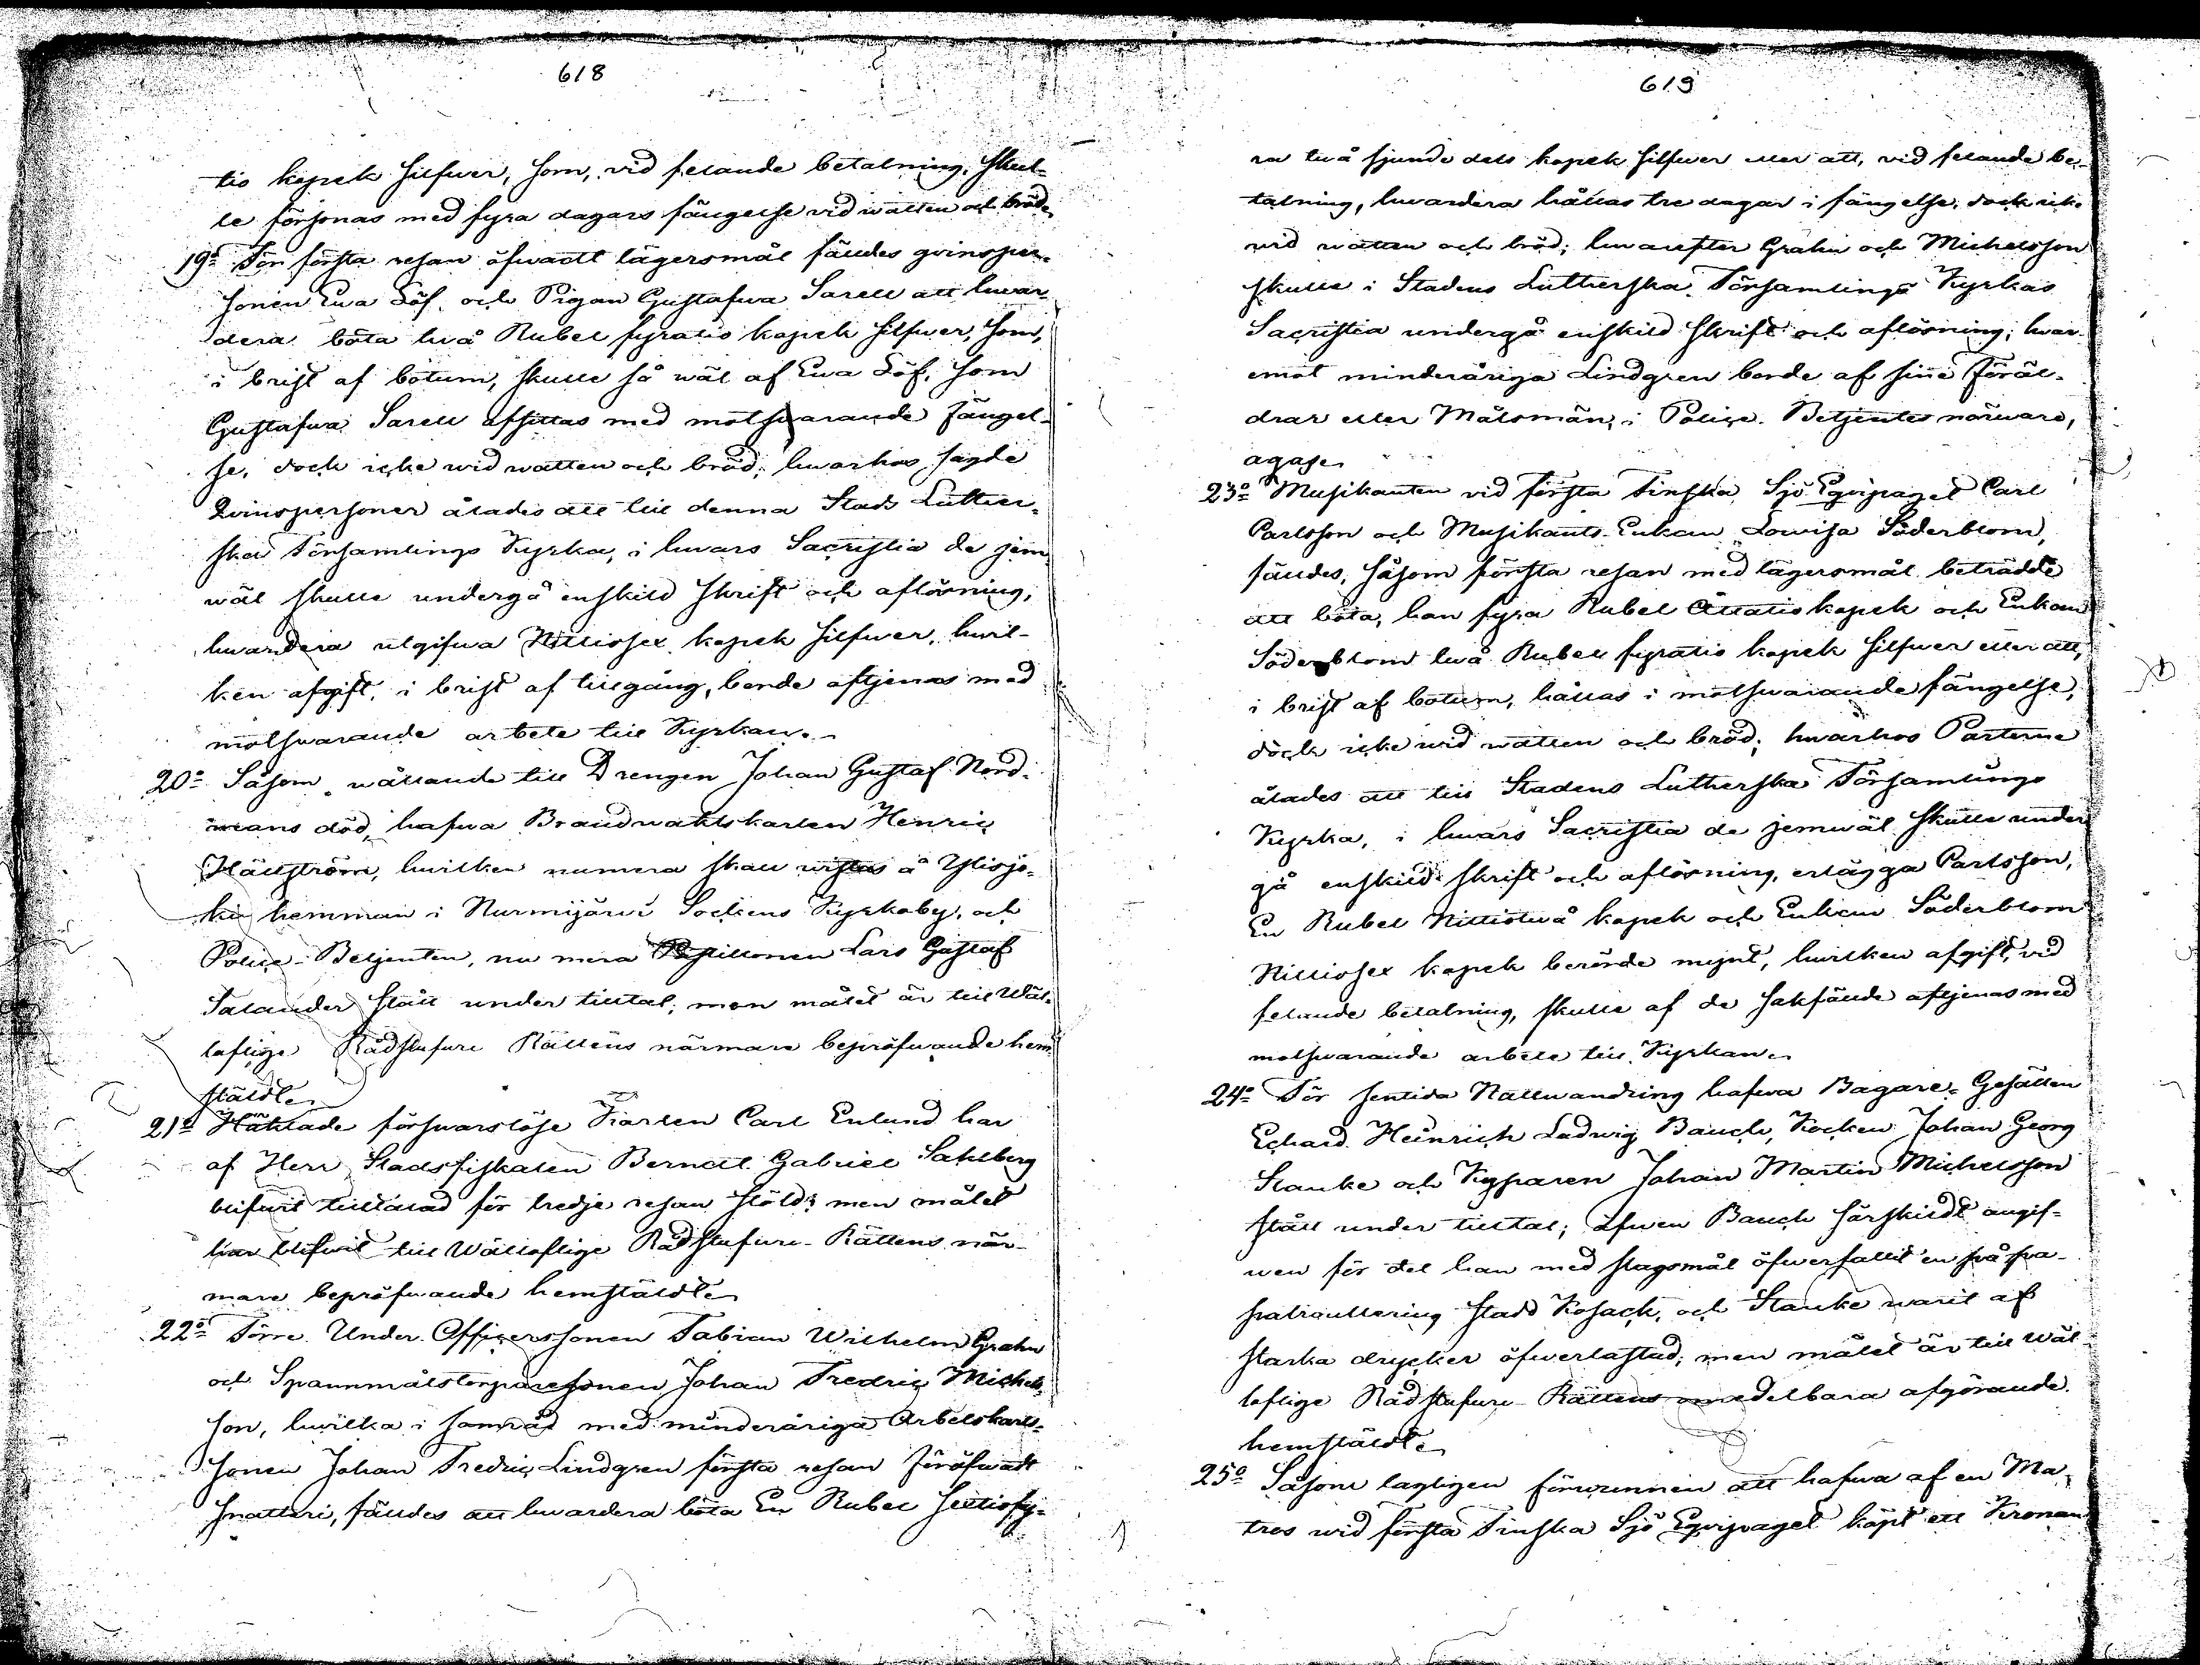 618
tio kopek silfwer, som, vid felande betalning, skul-
le försonas med fyra dagars fängelse vid watten och bröd.
19o För första resan öfwadt lägersmål fäldes qvinsper-
sonen Ewa Löf och Pigan Gustafwa Sarell att hwar-
dera böta två Rubel fyratio kopek silfwer, som,
i brist af bötum, skulle så wäl af Ewa Löf, som
Gustafwa Sarell afsittas med motswarande fängel-
se, dock icke wid watten och bröd; hwarhos sagde
Qvinspersoner ålades att till denna Stads Luther-
ska Församlings Kyrka, i hwars Sacristia de jem-
wäl skulle undergå enskild skrift och aflösning,
hwardera utgifwa Nittiosex kopek silfwer, hwil-
ken afgift, i brist af tillgång, borde aftjenas med
motswarande arbete till Kyrkan.
20o Såsom wållande till Drengen Johan Gustaf Nord-
mans död, hafwa Brandwaktskarlen Henric
Hällström, hwilken numera skall wistas å Ylisjo-
ki hemman i Nurmijärwi Sockens Kyrkoby, och
Police-Betjenten, nu mera Postillonen Lars Gustaf
Salander stått under tilltal; men målet är till Wäl-
laflige Rådstufwu Rättens närmare bepröfwande hem-
stäldt.
21o Häktade förswarslöse Karlen Carl Enlund har
af Herr Stadsfiskalen Berndt Gabriel Sahlberg
blifwit tilltalad för tredje resan stöld; men målet
har blifwit till Wällaflige Rådstufwu-Rättens när-
mare bepröfwande hemstäldt.
22o Förre Under-Officerssonen Fabian Wilhelm Grahn
och Spannmålstorparesonen Johan Fredric Michels-
son, hwilka i samråd med minderåriga Arbetskarls-
sonen Johan Fredric Lindgren första resan föröfwadt
snatteri, fäldes att hwardera böta En Rubel sextiofy-
619
ra två sjunde dels kopek silfwer eller att, vid felande be-
talning, hwardera hållas tre dagar i fängelse, dock icke
wid watten och bröd; hwarefter Grahn och Michelsson
skulle i Stadens Lutherska Församlings Kyrkas
Sacristia undergå enskild skrift och aflösning; hwar-
emot minderåriga Lindgren borde af sine Föräl-
drar eller Målsmän, i Police-Betjentes närwaro,
agas.
23o Musikanten vid första Finska Sjö-Eqvipaget Carl
Carlsson och Musikants-Enkan Lowisa Söderblom,
fäldes, såsom första resan med lägersmål beträdde
att böta, han fyra Rubel Åttatio kopek och Enkan
Söderblom två Rubel fyratio kopek silfwer eller att,
i brist af bötum, hållas i motswarande fängelse,
dock icke wid watten och bröd; hwarhos Parterne
ålades att till Stadens Lutherska Församlings
Kyrka, i hwars Sacristia de jemwäl skulle under
gå enskild skrift och aflösning, erlägga Carlsson,
En Rubel Nittiotwå kopek och Enkan Söderblom
Nittiosex kopek berörde mynt, hwilken afgift, vid
felande betalning, skulle af de sakfälde aftjenas med
motswarande arbete till Kyrkan.
24o För sentida Nattwandring hafwa Bagare-Gesällen
Echard Heinrich Ludwig Bauch, Kocken Johan Georg
Stanke och Kyparen Johan Martin Michelsson
stått under tilltal; äfwen Bauch särskildt angif-
wen för det han med slagsmål öfwerfallit en på pa-
patroullering stadd Kosack, och Stanke warit af
starka drycker öfwerlastad; men målet är till Wäl-
laflige Rådstufwu-Rättens omedelbara afgörande
hemstäldt.
25o Såsom lagligen förwunnen att hafwa af en Ma-
tros wid första Finska Sjö-Eqvipaget köpt ett Kronan